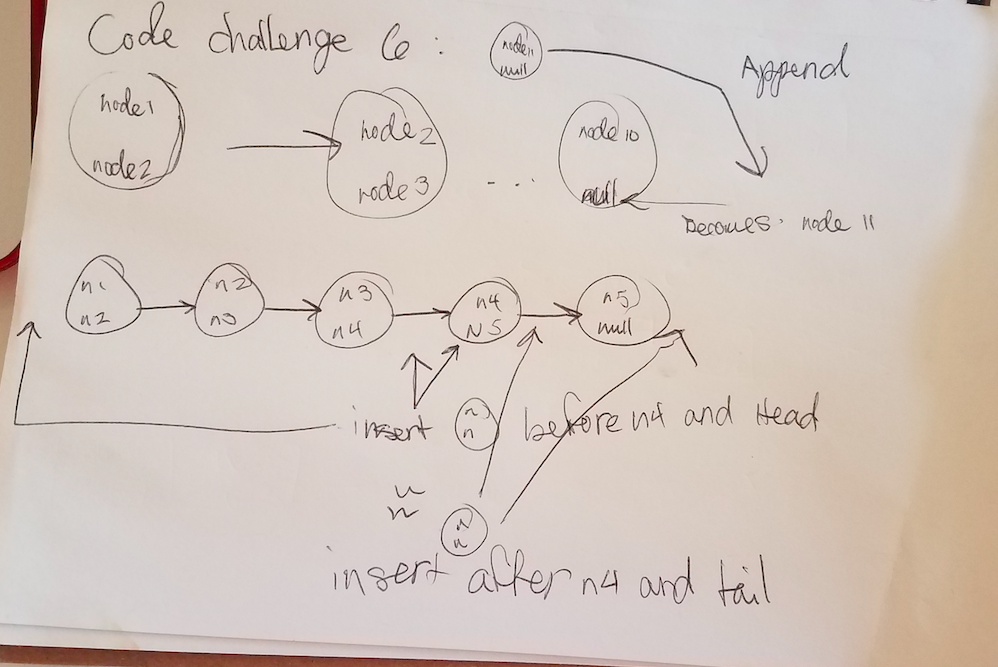 Code challenge 6 :
node 11
null
Append
node 1
node 2
node 2
node 3
...
node 10
null
Becomes: node 11
n1
n2
n2
n3
n3
n4
n4
N5
n5
null
insert
n
n
before n4 and Head
n
n
insert after n4 and tail